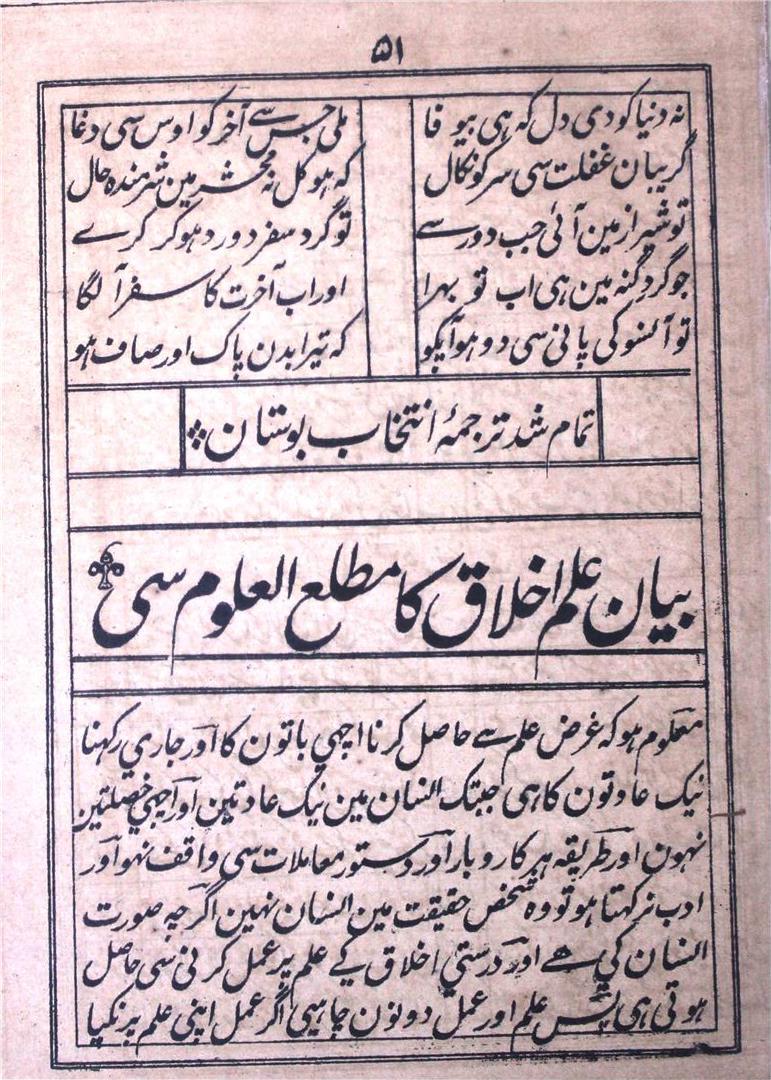 ۵۱
نہ دنیا کو دی دل کہ ہی بیو فا ملی جس سے آخر کو اوس سی دغا
گریبان غفلت سی سر کو نکال کہ ہو کل نہ محشر مین شرمندہ حال
تو شیراز مین آئی جب دور سے تو گرد سفر دور دہو کر کرے
جو گرد گنہ مین ہی اب تو بہرا اور اب آخرت کا سفر آ لگا
تو آنسو کی پانی سی دو ہو آپکو کہ تیرا بدن پاک اور صاف ہو
تمام شد ترجمۂ انتخاب بوستان
بیان علم اخلاق کا مطلع العلوم سی
معلوم ہو کہ غرض علم سے حاصل کرنا اچہی باتون کا اور جاری رکہنا
نیک عادتون کا ہی جبتک انسان مین نیک عادتین اور اچہی خصلتین
نہون اور طریقہ ہر کاروبار اور دستور معاملات سی واقف نہو اور
ادب نرکہتا ہو تو وہ شخص حقیقت مین انسان نہین اگرچہ صورت
انسان کی ہے اور درستی اخلاق کے علم پر عمل کرنی سی حاصل
ہوتی ہی پس علم اور عمل دونون چاہیی اگر عمل اپنی علم پر نکیا